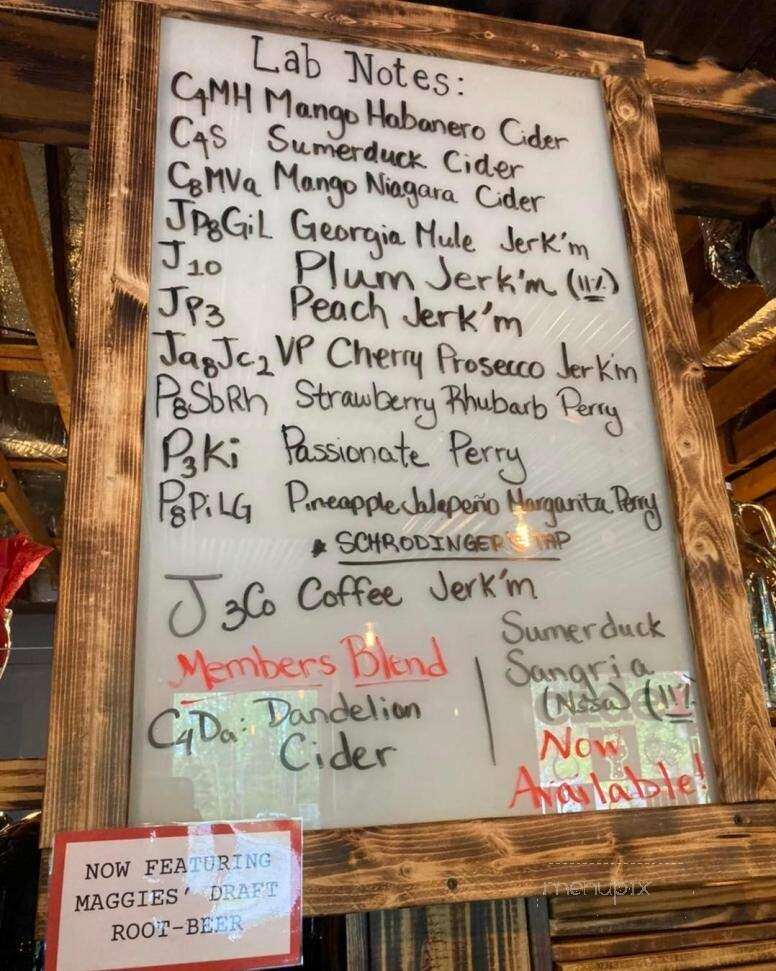 Lab Notes:
C4MH Mango Habanero Cider
C4S Sumerduck Cider
C8MVa Mango Niagara Cider
JP8GiL Georgia Mule Jerk'm
J10 Plum Jerk'm (11%)
JP3 Peach Jerk'm
Ja8Jc2VP Cherry Prosecco Jerk'm
P8SbRh Strawberry Rhubarb Perry
P3Ki Passionate Perry
P8PiLG Pineapple Jalepeño Margarita Perry
* SCHRODINGER'S TAP
J3Co Coffee Jerk'm
Members Blend
C4Da: Dandelion
Cider
Sumerduck
Sangria
(Nssa) (11%
Now
Available!
NOW FEATURING
MAGGIES' DRAFT
ROOT-BEER
menupix